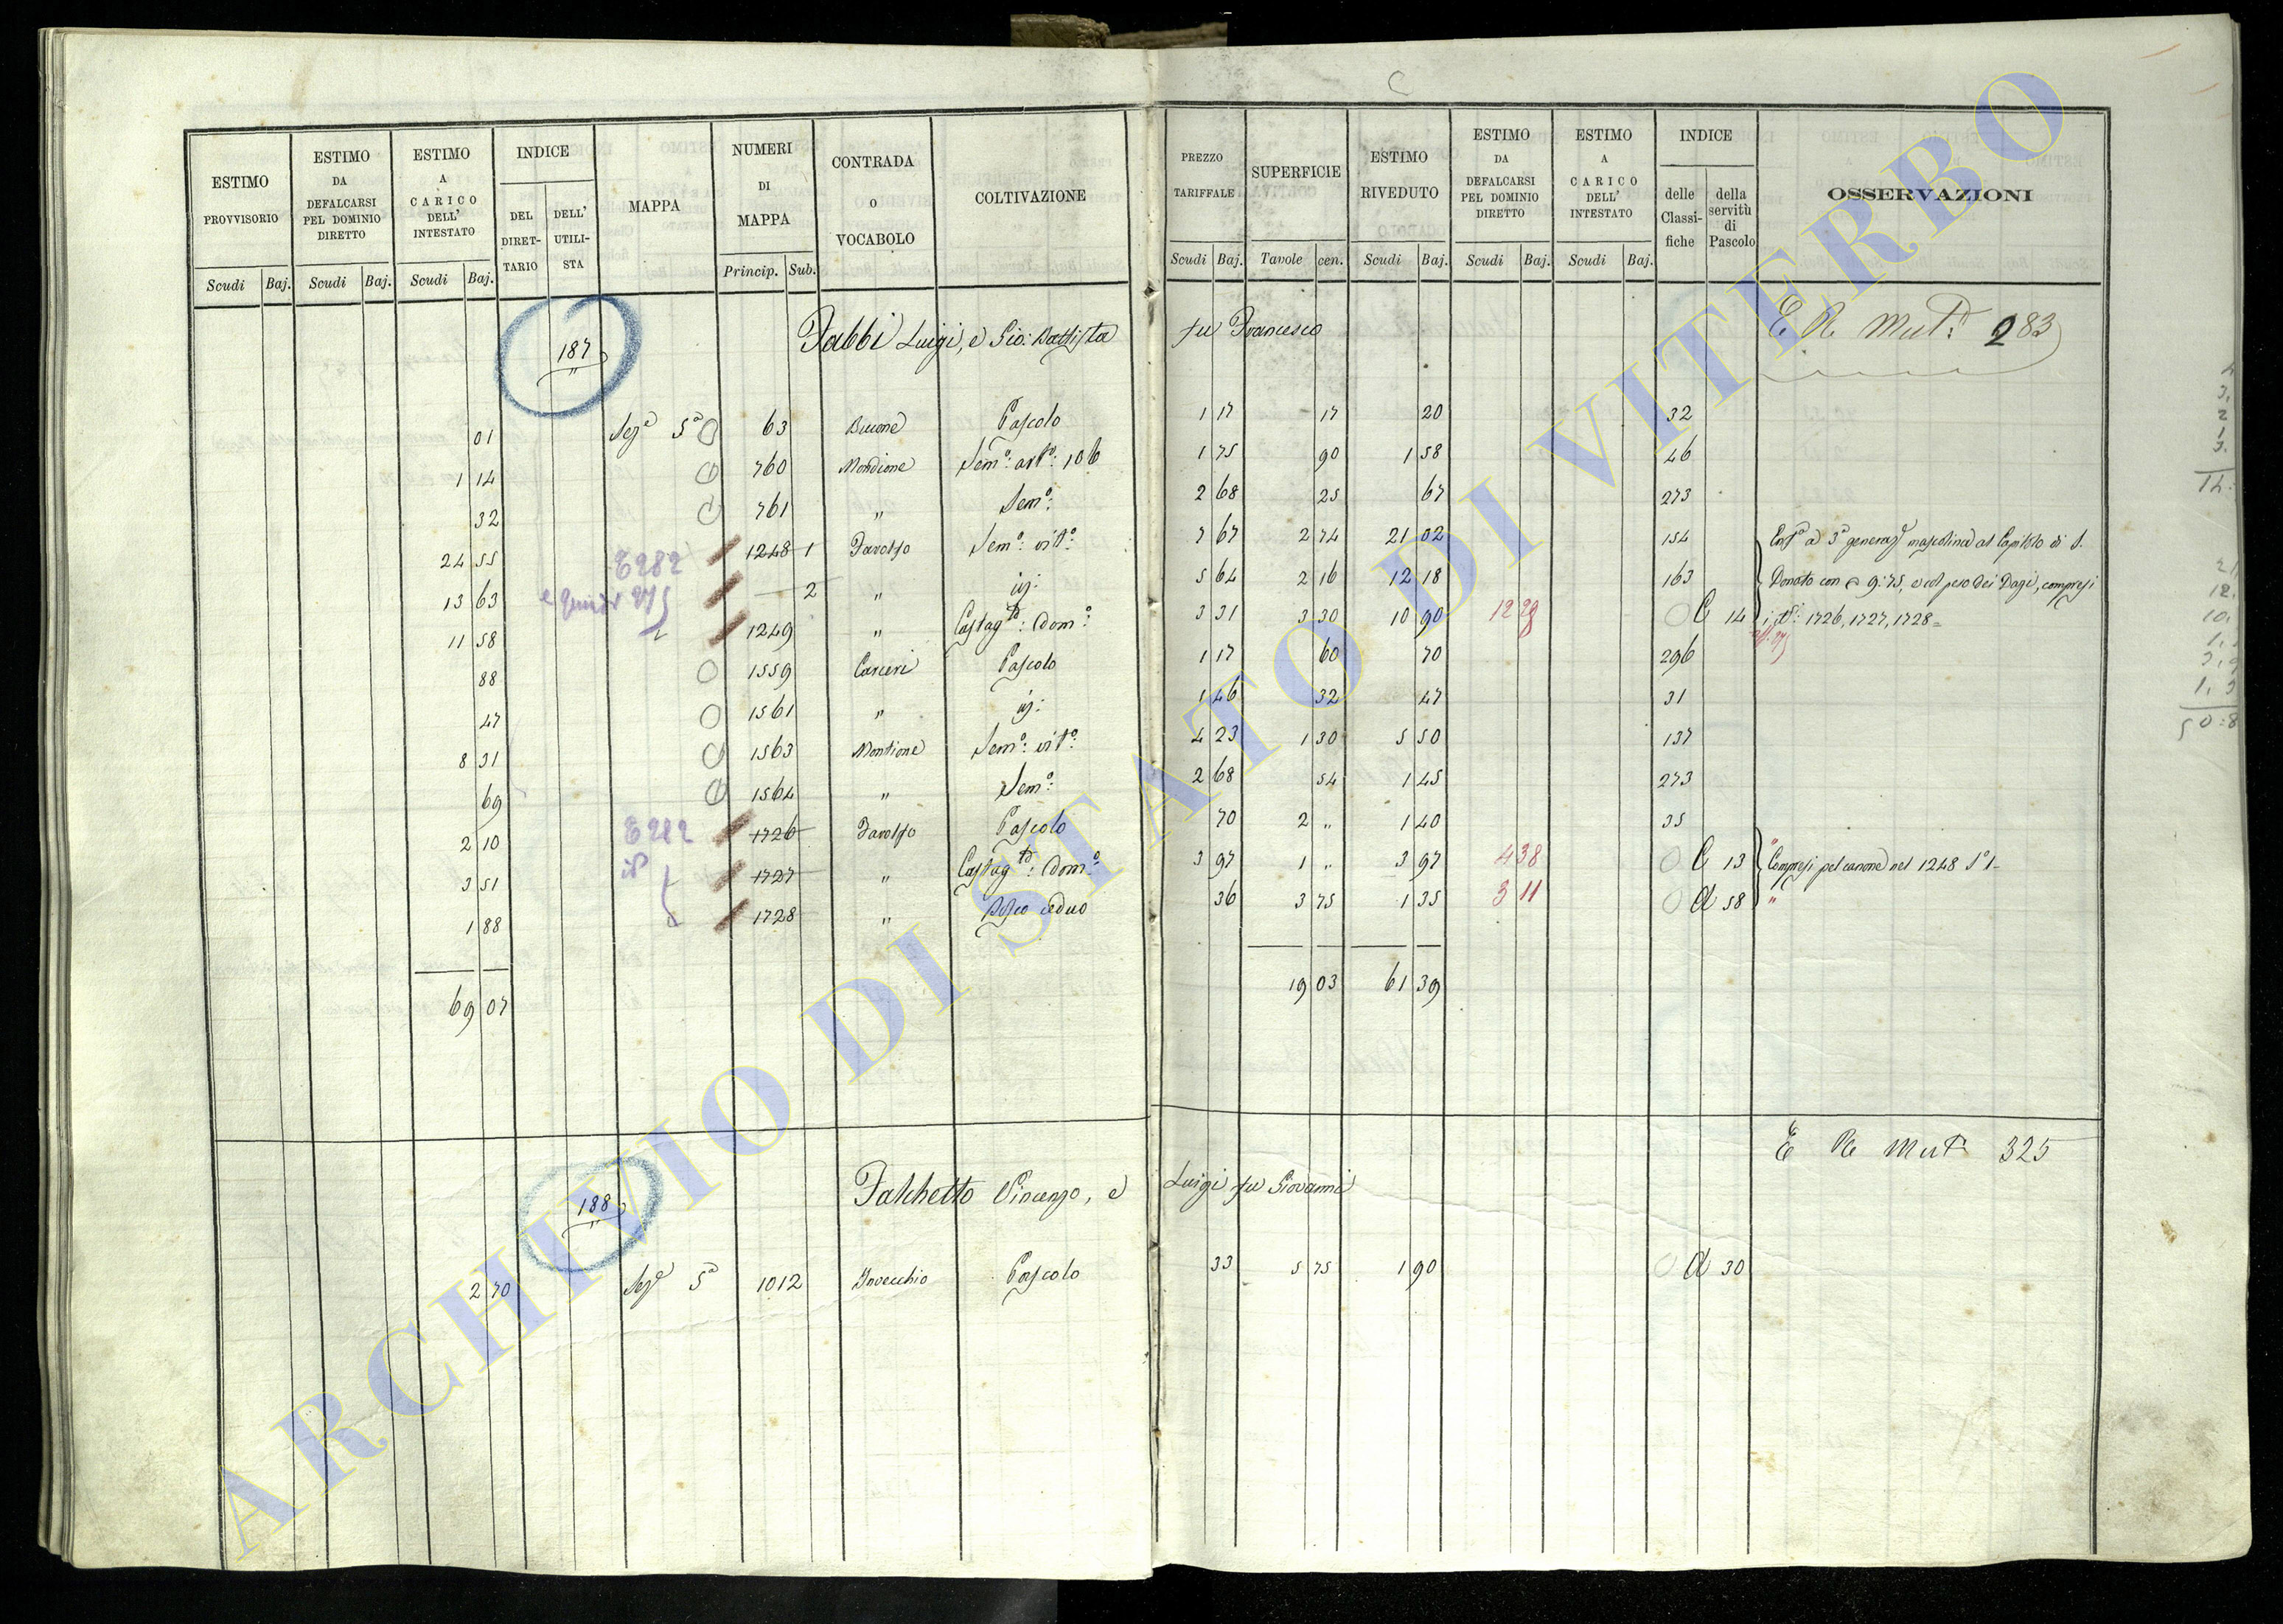 ESTIMO PROVVISORIO Scudi Baj.
ESTIMO DA DEFALCARSI PEL DOMINIO DIRETTO Scudi Baj.
ESTIMO A CARICO DELL' INTESTATO Scudi Baj.
INDICE DEL DIRET- TARIO DELL' UTILI- STA
MAPPA
NUMERI DI MAPPA Princip. Sub.
CONTRADA O VOCABOLO
COLTIVAZIONE
PREZZO TARIFFALE Scudi Baj.
SUPERFICIE Tavole cen.
ESTIMO RIVEDUTO Scudi Baj.
ESTIMO DA DEFALCARSI PEL DOMINIO DIRETTO Scudi Baj.
ESTIMO A CARICO DELL' INTESTATO Scudi Baj.
INDICE delle Classi- fiche della servitù di Pascolo
OSSERVAZIONI
187 Fabbi Luigi, e Gio: Battista fu Francesco E R Mut: 283
01 Sez.e 5a 63 Pascolo 1 17 17 20 32
1 14 760 Mondione Sem.o: art.o: 106 1 75 90 1 58 46
32 761 " Sem.o: 2 68 25 67 273
24 55 E 282 1248 1 Favolso Sem.o: vit.o: 7 67 2 74 21 02 154 a 3a generaz. mascolina al Capitolo di S.
13 63 2 " id: 5 64 2 16 12 18 163 Donato con 9:75, e col peso dei Dazi, compresi
11 58 1249 " Castag.to: Dom.o: 3 31 3 30 10 90 12 29 C 14 i Ni 1726, 1727, 1728=
88 1559 Carceri Pascolo 1 17 60 70 296
47 1561 " id: 1 46 32 47 31
8 31 1563 Montione Sem.o: vit.o: 4 23 1 30 5 50 137
69 1564 " Sem.o: 2 68 54 1 45 273
2 10 E 282 1726 Favolso Pascolo 70 2 " 1 40 35
3 51 id 1727 " Castag.to: Dom.o: 3 97 1 " 3 97 4 38 C 13 Compresi pel canone nel 1248 S.o 1-
1 88 1728 " Bosco ceduo 36 3 75 1 35 3 11 A 58 "
69 07 19 03 61 39
188 Falchetto Vincenzo, e Luigi fu Giovanni E R Mut. 325
2 70 Sez.e 5a 1012 Pascolo 33 5 75 1 90 A 30
ARCHIVIO DI STATO DI VITERBO